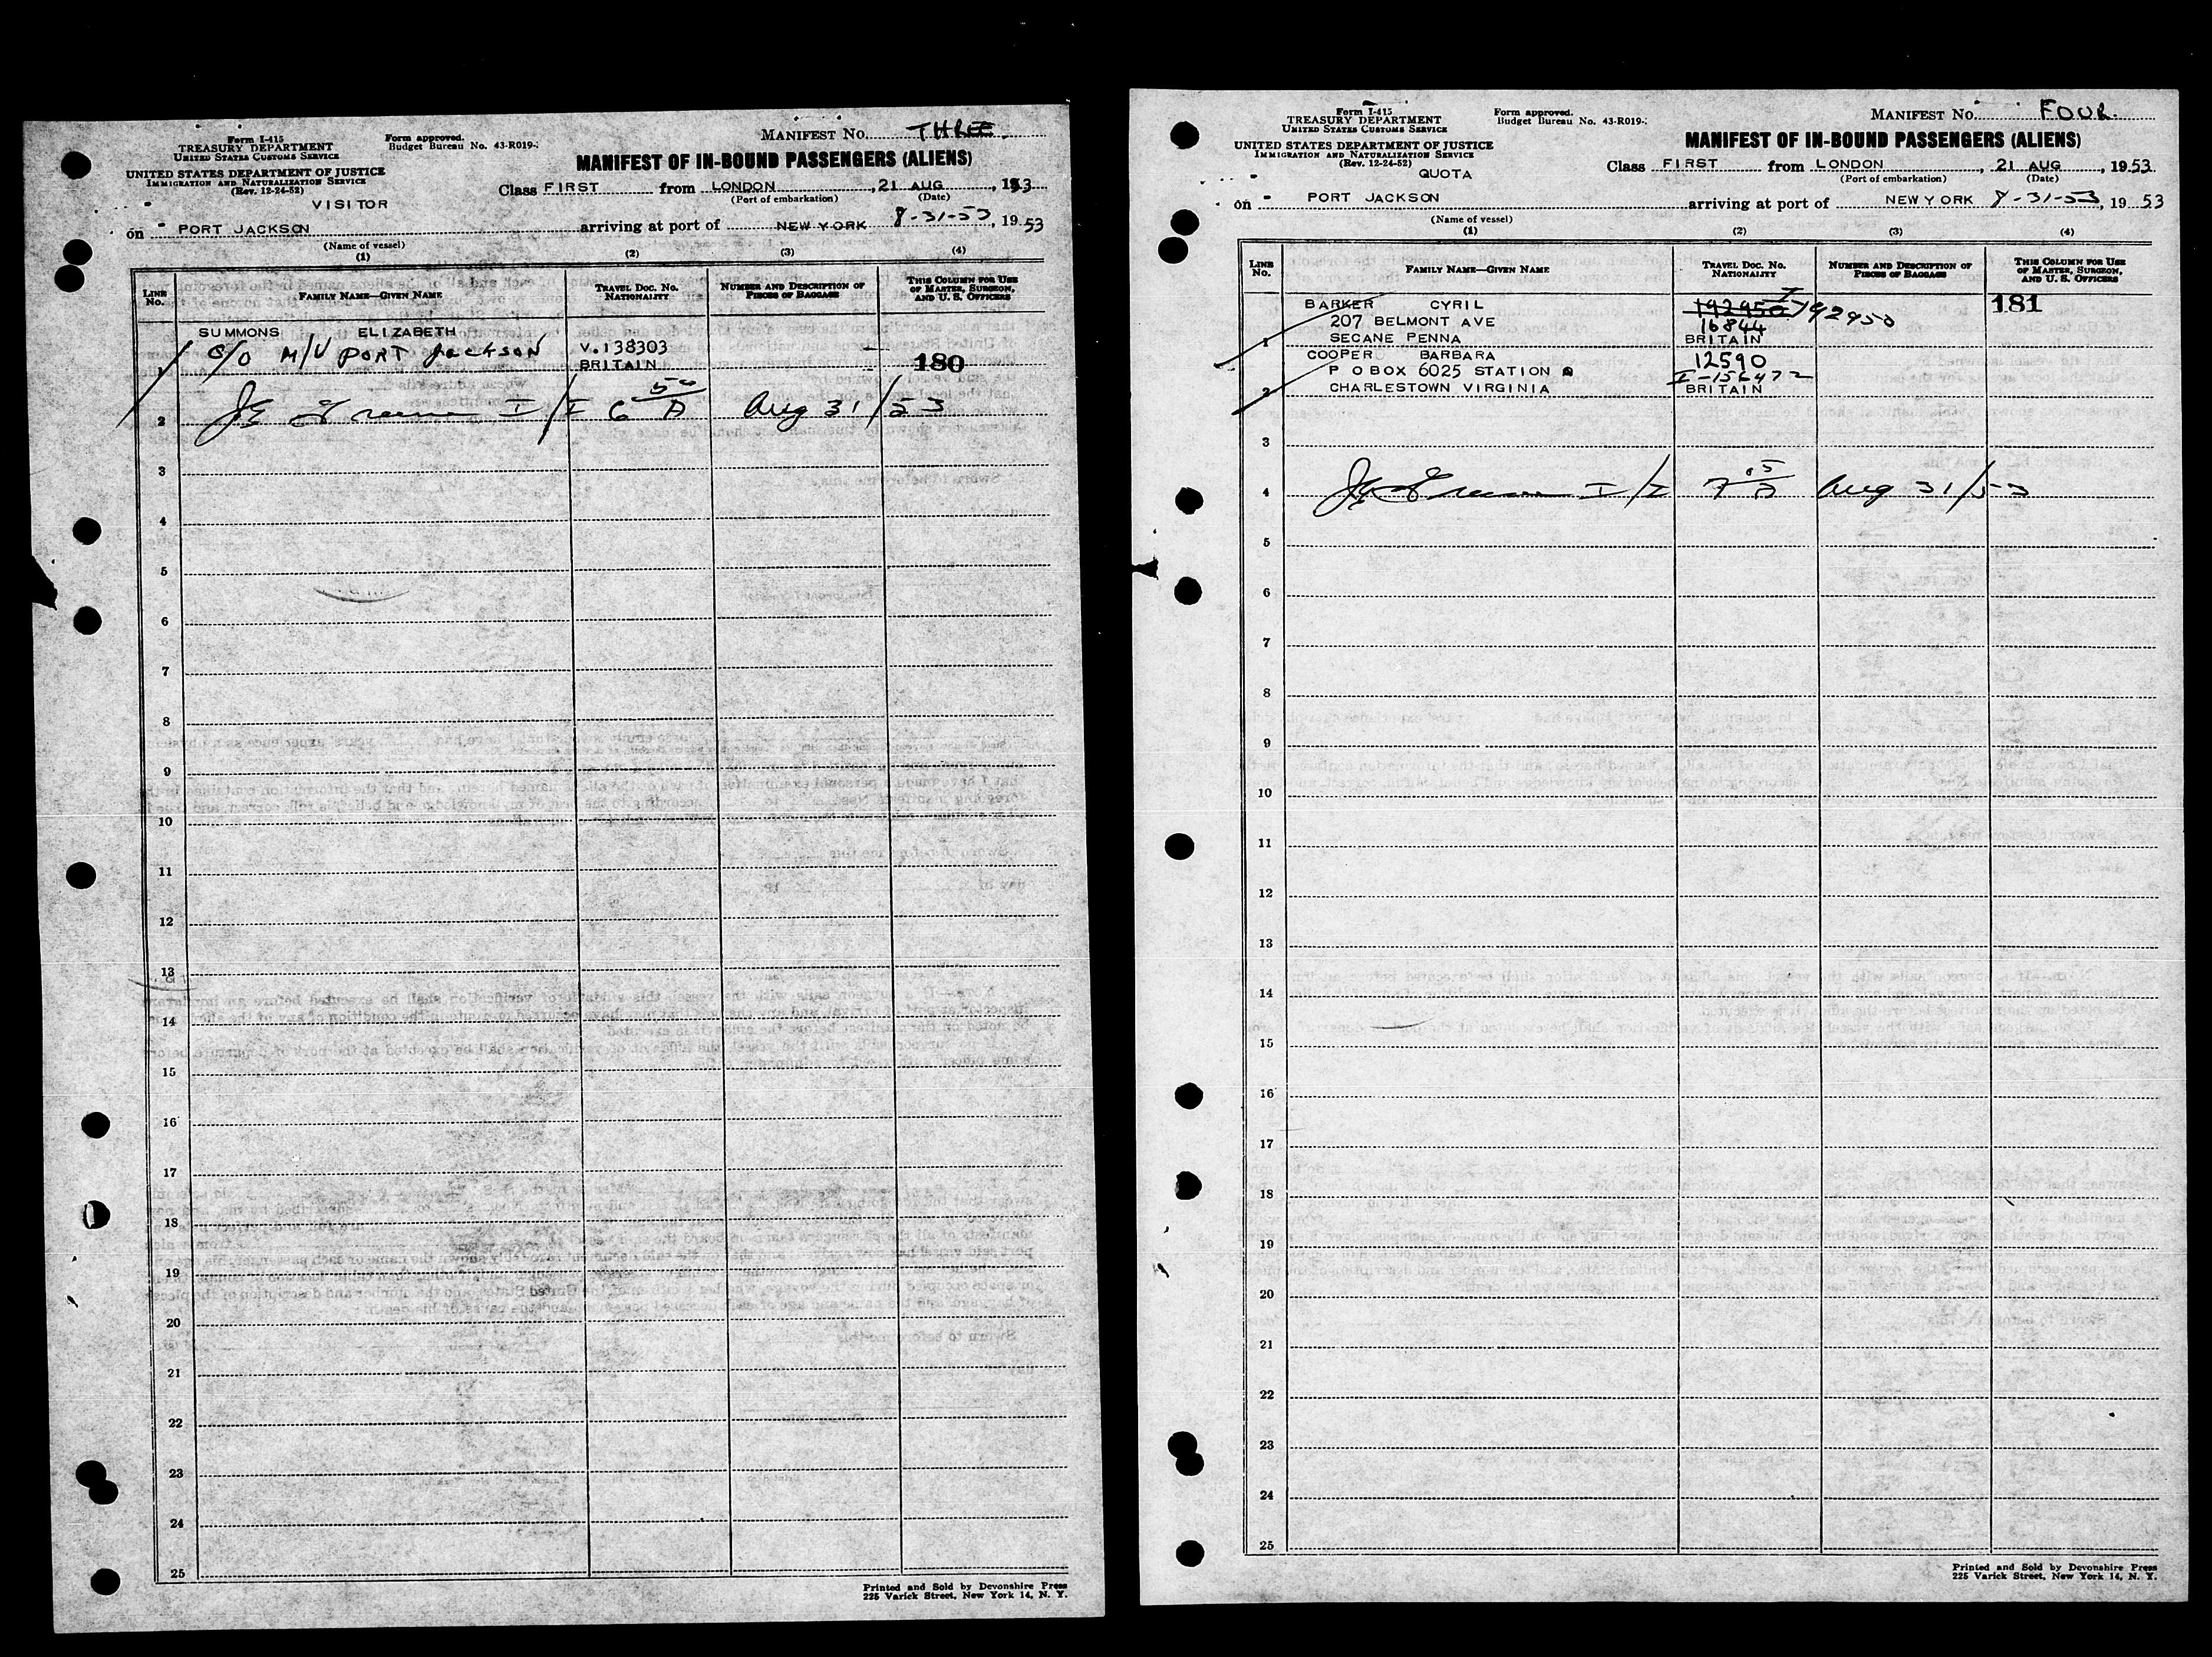 Form I-415
TREASURY DEPARTMENT
UNITED STATES CUSTOMS SERVICE
UNITED STATES DEPARTMENT OF JUSTICE
IMMIGRATION AND NATURALIZATION SERVICE
(Rev. 12-24-52)
VISITOR
Form approved.
Budget Bureau No. 43-R019-
MANIFEST No. THREE.
MANIFEST OF IN-BOUND PASSENGERS (ALIENS)
Class FIRST from LONDON, 21 AUG, 1953
(Port of embarkation) (Date)
on PORT JACKSON arriving at port of NEW YORK 8-31-53, 19 53
(Name of vessel)
(1) (2) (3) (4)
LINE No. FAMILY NAME—GIVEN NAME TRAVEL DOC. NO. NATIONALITY NUMBER AND DESCRIPTION OF PIECES OF BAGGAGE THIS COLUMN FOR USE OF MASTER, SURGEON, AND U. S. OFFICERS
SUMMONS ELIZABETH
1 C/O M/V PORT JACKSON V.138303 180
BRITAIN
2 I/I 6 50 A Aug 31/53
3
4
5
6
7
8
9
10
11
12
13
14
15
16
17
18
19
20
21
22
23
24
25
Printed and Sold by Devonshire Press
225 Varick Street, New York 14, N. Y.
Form I-415
TREASURY DEPARTMENT
UNITED STATES CUSTOMS SERVICE
UNITED STATES DEPARTMENT OF JUSTICE
IMMIGRATION AND NATURALIZATION SERVICE
(Rev. 12-24-52)
QUOTA
Form approved.
Budget Bureau No. 43-R019-
MANIFEST No. FOUR.
MANIFEST OF IN-BOUND PASSENGERS (ALIENS)
Class FIRST from LONDON, 21 AUG, 1953
(Port of embarkation) (Date)
on PORT JACKSON arriving at port of NEW YORK 8-31-53, 19 53
(Name of vessel)
(1) (2) (3) (4)
LINE No. FAMILY NAME—GIVEN NAME TRAVEL DOC. NO. NATIONALITY NUMBER AND DESCRIPTION OF PIECES OF BAGGAGE THIS COLUMN FOR USE OF MASTER, SURGEON, AND U. S. OFFICERS
BARKER CYRIL 192950 I 792950 181
207 BELMONT AVE 16844
1 SECANE PENNA BRITAIN
COOPER BARBARA 12590
P O BOX 6025 STATION A I-156472
2 CHARLESTOWN VIRGINIA BRITAIN
3
4 I/I 7 05 A Aug 31/53
5
6
7
8
9
10
11
12
13
14
15
16
17
18
19
20
21
22
23
24
25
Printed and Sold by Devonshire Press
225 Varick Street, New York 14, N. Y.